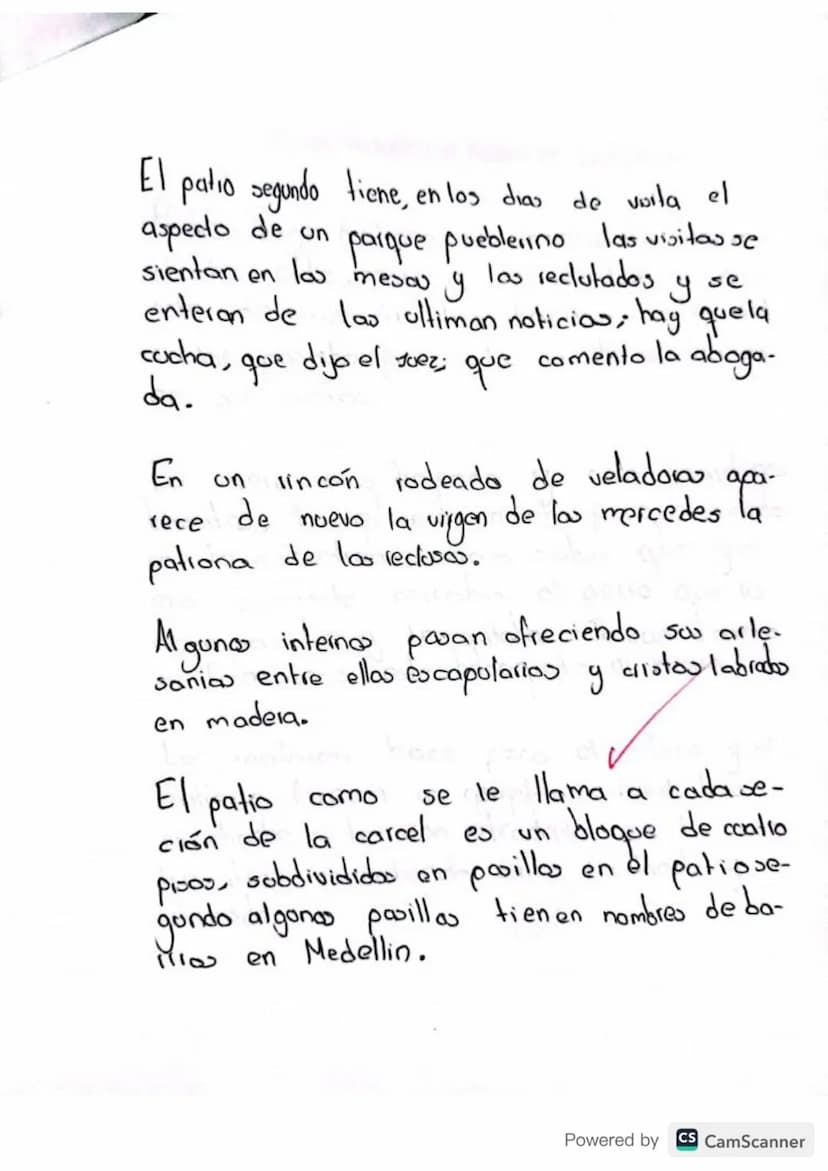 El patio segundo tiene, en los dias de visita el
aspecto de un parque pueblerino las visitas se
sientan en las mesas y los reclutados y se
enteran de las ultiman noticias; hay que la
cucha, que dijo el Juez; que comento la aboga-
da.
En un rincón rodeada de veladoras apa-
rece de nuevo la virgen de las mercedes la
patrona de las reclusas.
Algunos internos pasan ofreciendo sus arte-
sanias entre ellas escapularios y cristos labrados
en madera.
El patio como se le llama a cada se-
ción de la carcel es un bloque de cuatro
pisos, subdivididos en pasillos en el patio se-
gundo algunos pasillos tienen nombres de ba-
rrios en Medellin.
Powered by CS CamScanner